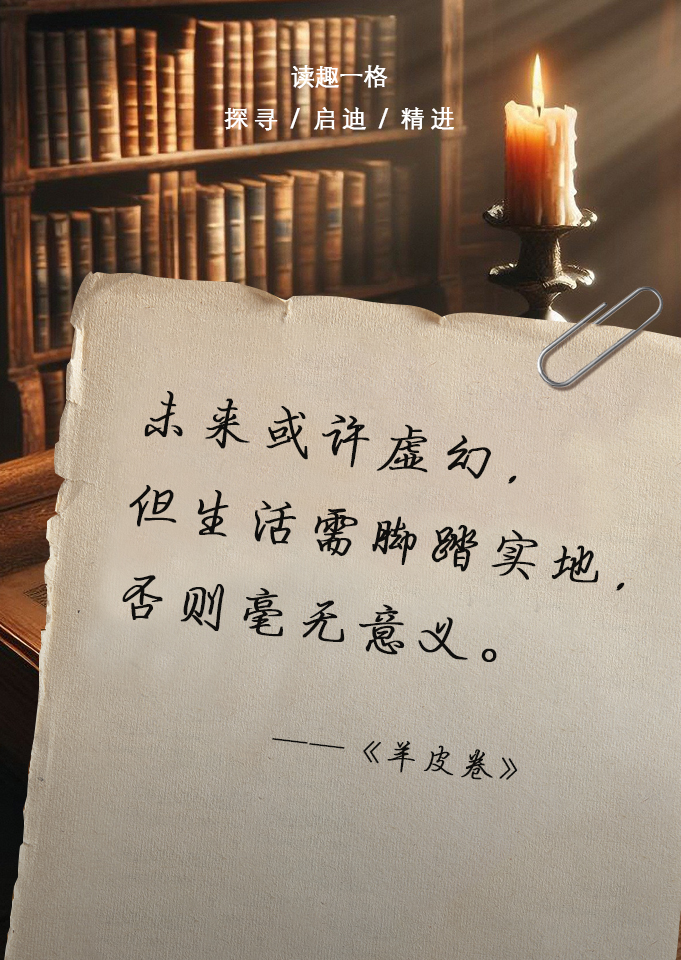 读趣一格
探寻 / 启迪 / 精进
未来或许虚幻，
但生活需脚踏实地，
否则毫无意义。
——《羊皮卷》